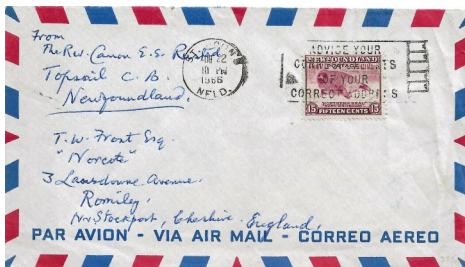 From
The Rev. Canon E.S.
Topsail C.B.
Newfoundland.
ST. JOHN'S
22
10 PM
1956
NFLD.
ADVISE YOUR
CORRESPONDENTS
OF YOUR
CORRECT ADDRESS
NEWFOUNDLAND
POSTAGE
15 15
FIFTEEN CENTS
T.W. Frost Esq.
"Norcote"
3 Lansdowne Avenue.
Romiley.
Nr. Stockport, Cheshire. England.
PAR AVION - VIA AIR MAIL - CORREO AEREO